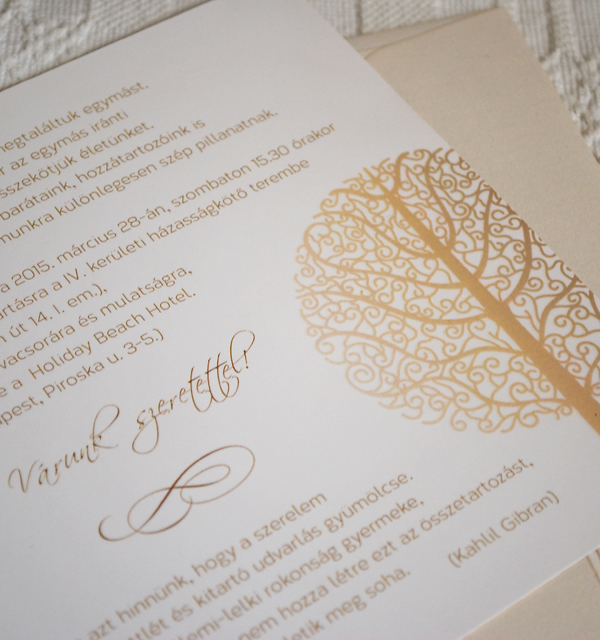 egtaláltuk egymást.
az egymás iránti
sszekötjük életünket.
barátaink, hozzátartozóink is
munkra különlegesen szép pillanatnak.
a 2015. március 28-án, szombaton 15.30 órakor
artásra a IV. kerületi házasságkötő terembe
út 14. I. em.),
vacsorára és mulatságra,
e a Holiday Beach Hotel.
pest, Piroska u. 3-5.)
Várunk szeretettel!
azt hinnünk, hogy a szerelem
ttlét és kitartó udvarlás gyümölcse.
emi-lelki rokonság gyermeke,
nem hozza létre ezt az összetartozást,
letik meg soha.
(Kahlil Gibran)